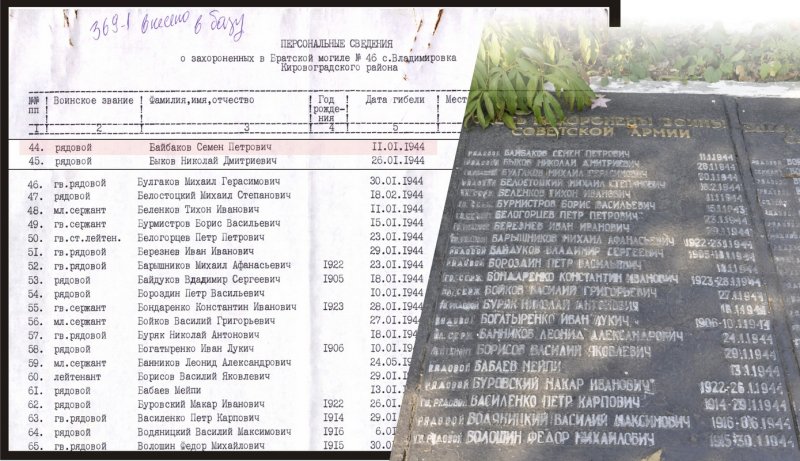 369-1 внесено в базу
ПЕРСОНАЛЬНЫЕ СВЕДЕНИЯ
о захороненных в Братской могиле № 46 с.Владимировка
Кировоградского района
№№ пп ! Воинское звание ! Фамилия,имя,отчество ! Год рожде-ния ! Дата гибели ! Мест
1. 2 3 ! 4 ! 5
44. рядовой Байбаков Семен Петрович II.OI.I944
45. рядовой Быков Николай Дмитриевич 26.OI.I944
46. гв.рядовой Булгаков Михаил Герасимович 30.OI.I944
47. рядовой Белостоцкий Михаил Степанович 18.02.I944
48. мл.сержант Беленков Тихон Иванович II.OI.I944
49. гв.сержант Бурмистров Борис Васильевич 15.OI.I944
50. гв.ст.лейтен. Белогорцев Петр Петрович 23.OI.I944
51. гв.рядовой Березнев Иван Иванович 29.OI.I944
52. гв.рядовой Барышников Михаил Афанасьевич I922 23.OI.I944
53. рядовой Байдуков Владимир Сергеевич I905 18.OI.I944
54. рядовой Бороздин Петр Васильевич 10.OI.I944
55. гв.сержант Бондаренко Константин Иванович I923 28.OI.I944
56. мл.сержант Бойков Василий Григорьевич 27.OI.I944
57. гв.рядовой Буряк Николай Антонович 18.OI.I944
58. рядовой Богатыренко Иван Лукич I906 10.OI.I944
59. мл.сержант Банников Леонид Александрович 24.05.I944
60. лейтенант Борисов Василий Яковлевич 29.OI.I944
61. рядовой Бабаев Мейпи 13.OI.I944
62. рядовой Буровский Макар Иванович I922 26.OI.I944
63. гв.рядовой Василенко Петр Карпович I9I4 29.OI.I944
64. рядовой Водяницкий Василий Максимович I9I6 6.OI.I944
65. гв.рядовой Волошин Федор Михайлович I9I5 30.OI.I944
ЗАХОРОНЕНЫ ВОИНЫ
СОВЕТСКОЙ АРМИИ
РЯДОВОЙ БАЙБАКОВ СЕМЕН ПЕТРОВИЧ 11.1.1944
РЯДОВОЙ БЫКОВ НИКОЛАЙ ДМИТРИЕВИЧ 26.1.1944
БУЛГАКОВ МИХАИЛ ГЕРАСИМОВИЧ 30.1.1944
БЕЛОСТОЦКИЙ МИХАИЛ СТЕПАНОВИЧ 18.2.1944
БЕЛЕНКОВ ТИХОН ИВАНОВИЧ
БУРМИСТРОВ БОРИС ВАСИЛЬЕВИЧ
БЕЛОГОРЦЕВ ПЕТР ПЕТРОВИЧ 23.1.1944
БЕРЕЗНЕВ ИВАН ИВАНОВИЧ 29.1.1944
БАРЫШНИКОВ МИХАИЛ АФАНАСЬЕВИЧ 1922-23.1.1944
БАЙДУКОВ ВЛАДИМИР СЕРГЕЕВИЧ 1905-18.1.1944
РЯДОВОЙ БОРОЗДИН ПЕТР ВАСИЛЬЕВИЧ
БОНДАРЕНКО КОНСТАНТИН ИВАНОВИЧ 1923-28.1.1944
БОЙКОВ ВАСИЛИЙ ГРИГОРЬЕВИЧ 27.1.1944
БУРЯК НИКОЛАЙ АНТОНОВИЧ 18.1.1944
РЯДОВОЙ БОГАТЫРЕНКО ИВАН ЛУКИЧ 1906-10.1.1944
БАННИКОВ ЛЕОНИД АЛЕКСАНДРОВИЧ 24.1.1944
БОРИСОВ ВАСИЛИЙ ЯКОВЛЕВИЧ 29.1.1944
РЯДОВОЙ БАБАЕВ МЕЙПИ 13.1.1944
РЯДОВОЙ БУРОВСКИЙ МАКАР ИВАНОВИЧ 1922-26.1.1944
ГВ. РЯДОВ. ВАСИЛЕНКО ПЕТР КАРПОВИЧ 1914-29.1.1944
РЯДОВОЙ ВОДЯНИЦКИЙ ВАСИЛИЙ МАКСИМОВИЧ 1916-06.1.1944
ГВ. РЯДОВОЙ ВОЛОШИН ФЕДОР МИХАЙЛОВИЧ 1915-30.1.1944